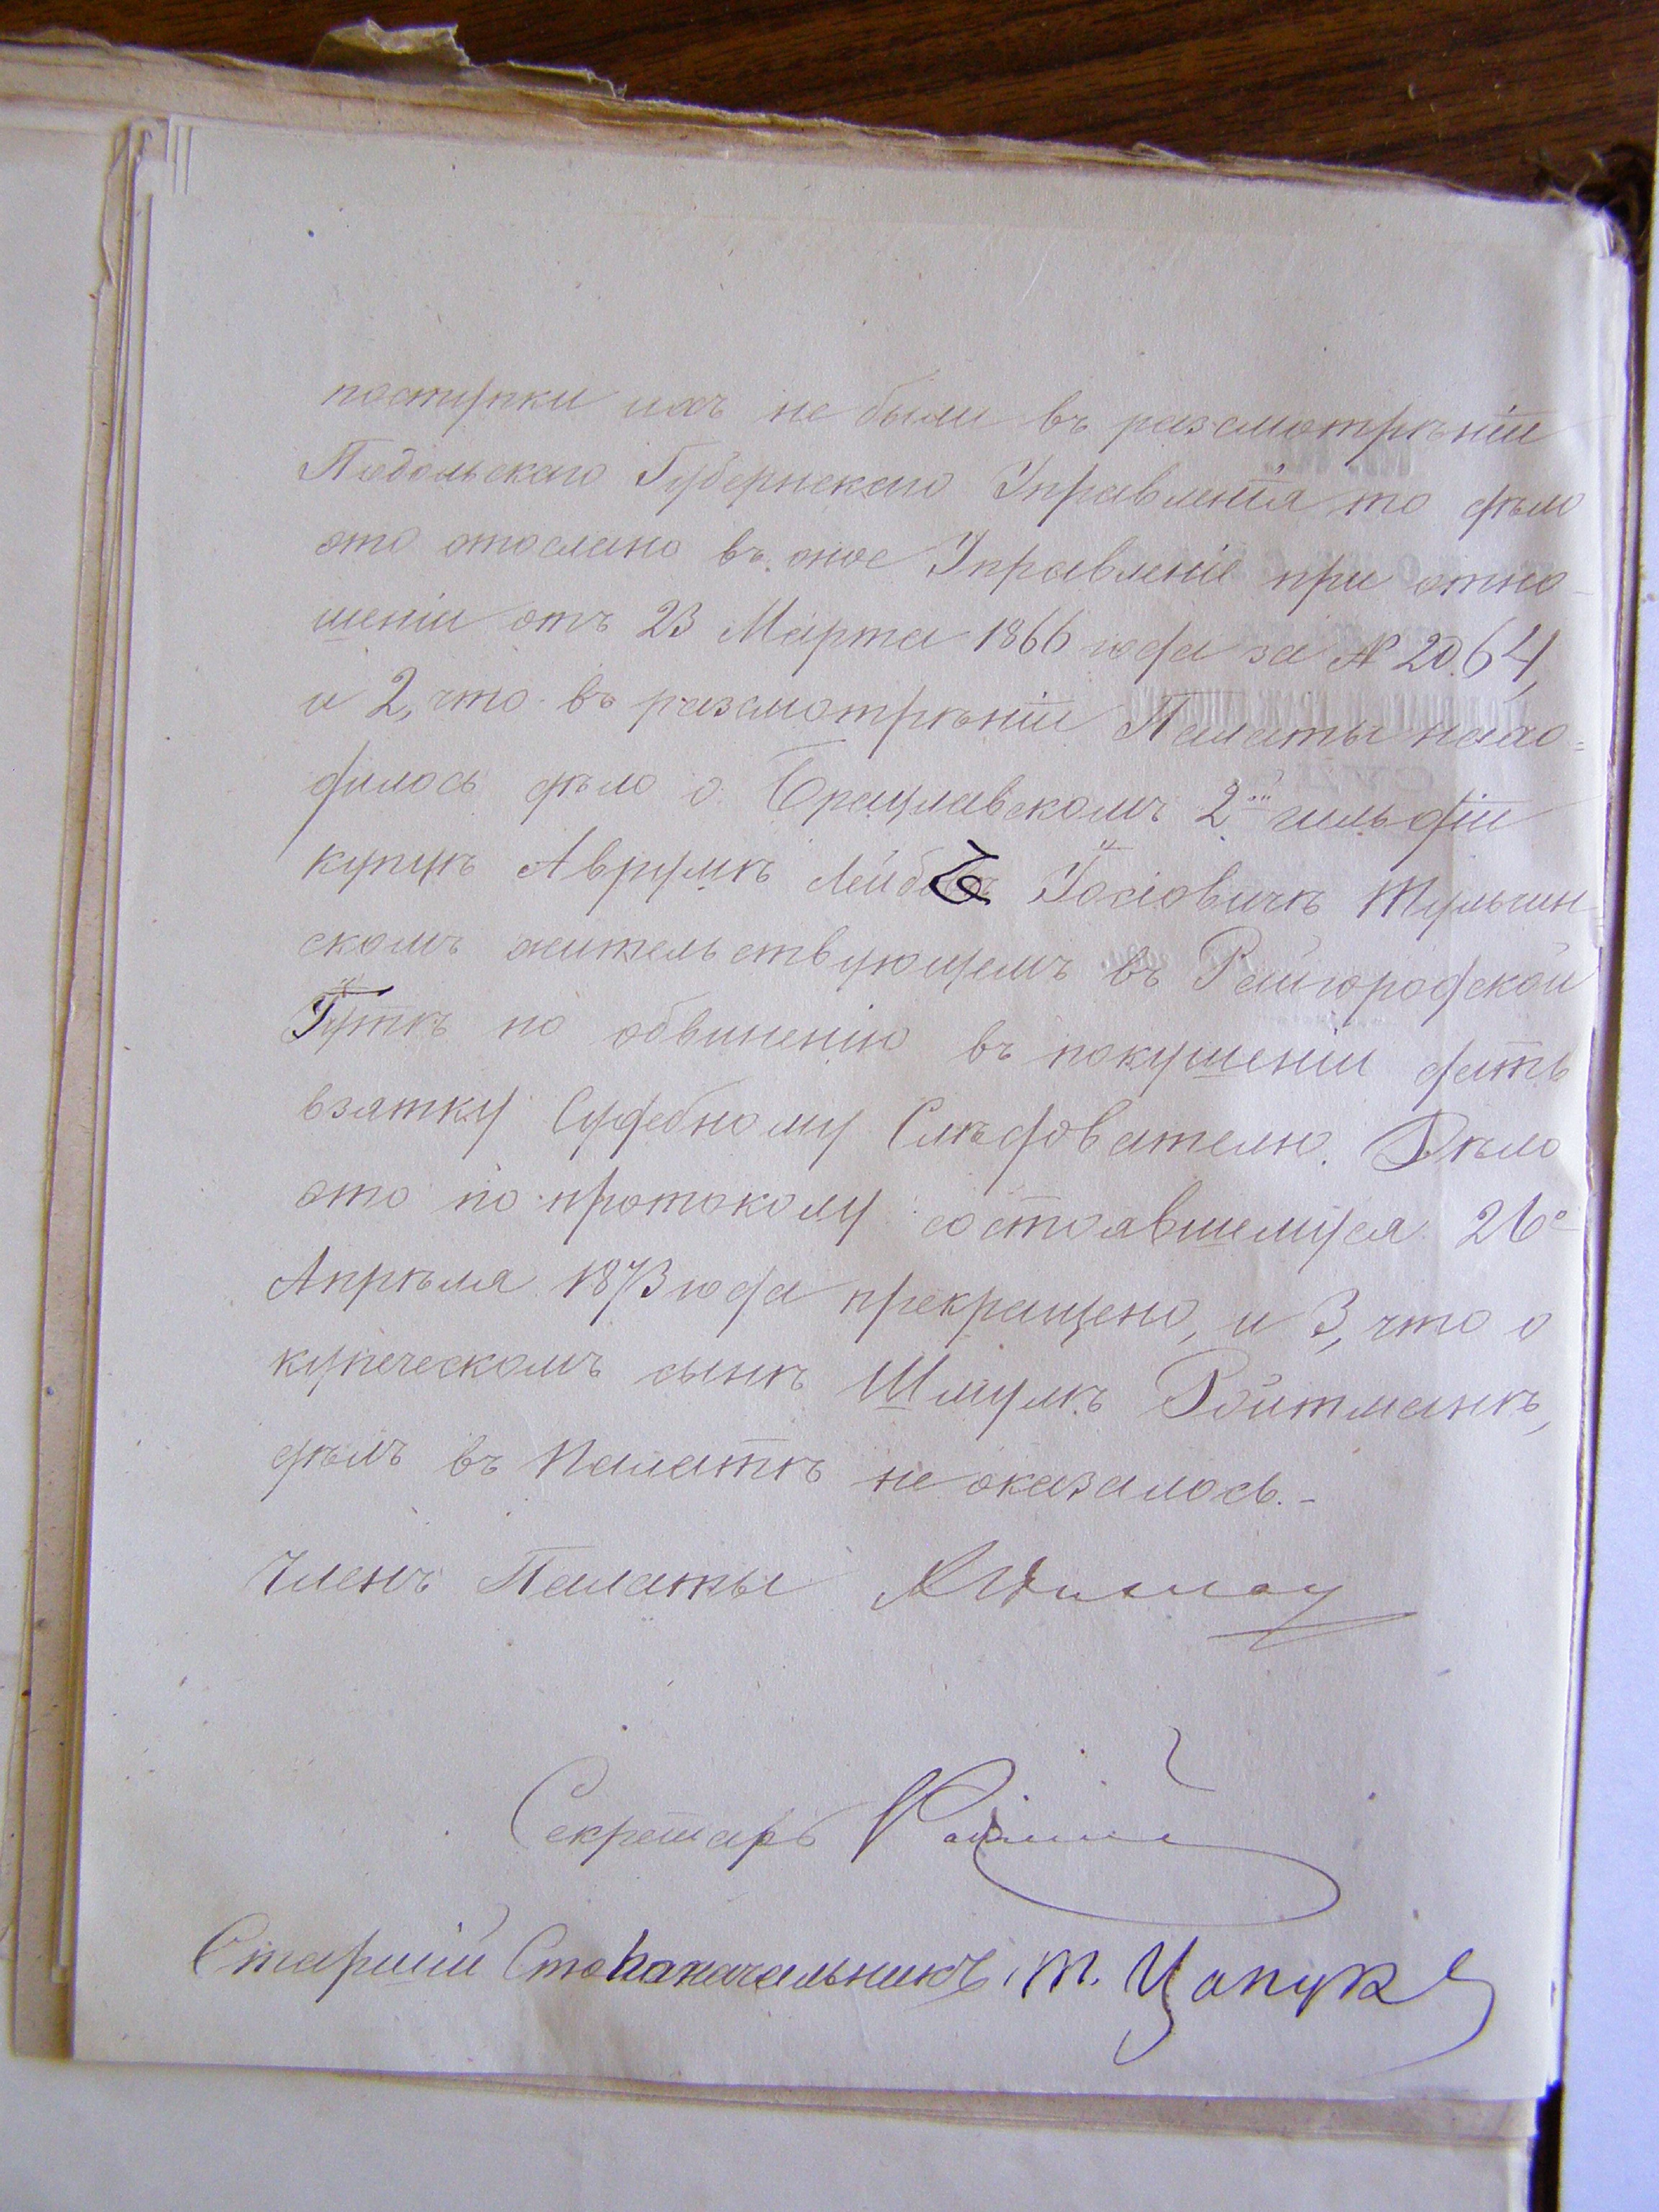 поступки ихъ не были въ разсмотрѣніи
Подольскаго Губернскаго Управленія то дѣло
это отослано въ оное Управленіе при отно-
шеніи отъ 23 Марта 1866 года за № 2064,
и 2, что въ разсмотрѣніи Палаты нахо=
дилось дѣло о Брацлавскомъ 2ой гильдіи
купцѣ Аврумѣ Лейбѣ Іосіовичѣ Тульчин-
скомъ жительствующемъ въ Райгородской
Гутѣ по обвиненію въ покушеніи дать
взятку Судебному Слѣдователю. Дѣло
это по протоколу состоявшемуся 26о
Апрѣля 1873 года прекращено, и 3, что о
купеческомъ сынѣ Шмулѣ Ройтманѣ,
дѣлъ въ Палатѣ не оказалось.-
Членъ Палаты
Секретарь
Старшій Столоначальникъ, Т. Цапук